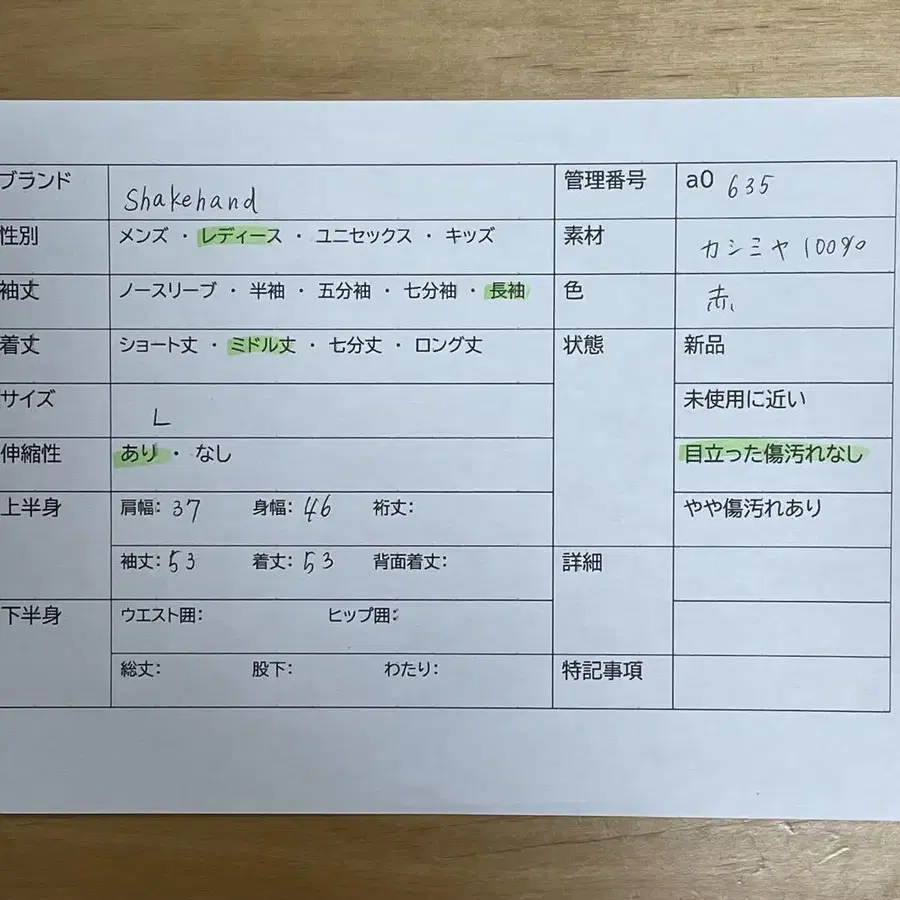 ブランド Shakehand 管理番号 a0 635
性別 メンズ ・ レディース ・ ユニセックス ・ キッズ 素材 カシミヤ 100%
袖丈 ノースリーブ ・ 半袖 ・ 五分袖 ・ 七分袖 ・ 長袖 色 赤
着丈 ショート丈 ・ ミドル丈 ・ 七分丈 ・ ロング丈 状態 新品
サイズ L 未使用に近い
伸縮性 あり ・ なし 目立った傷汚れなし
上半身 肩幅: 37 身幅: 46 裄丈: やや傷汚れあり
袖丈: 53 着丈: 53 背面着丈: 詳細
下半身 ウエスト囲: ヒップ囲:
総丈: 股下: わたり: 特記事項